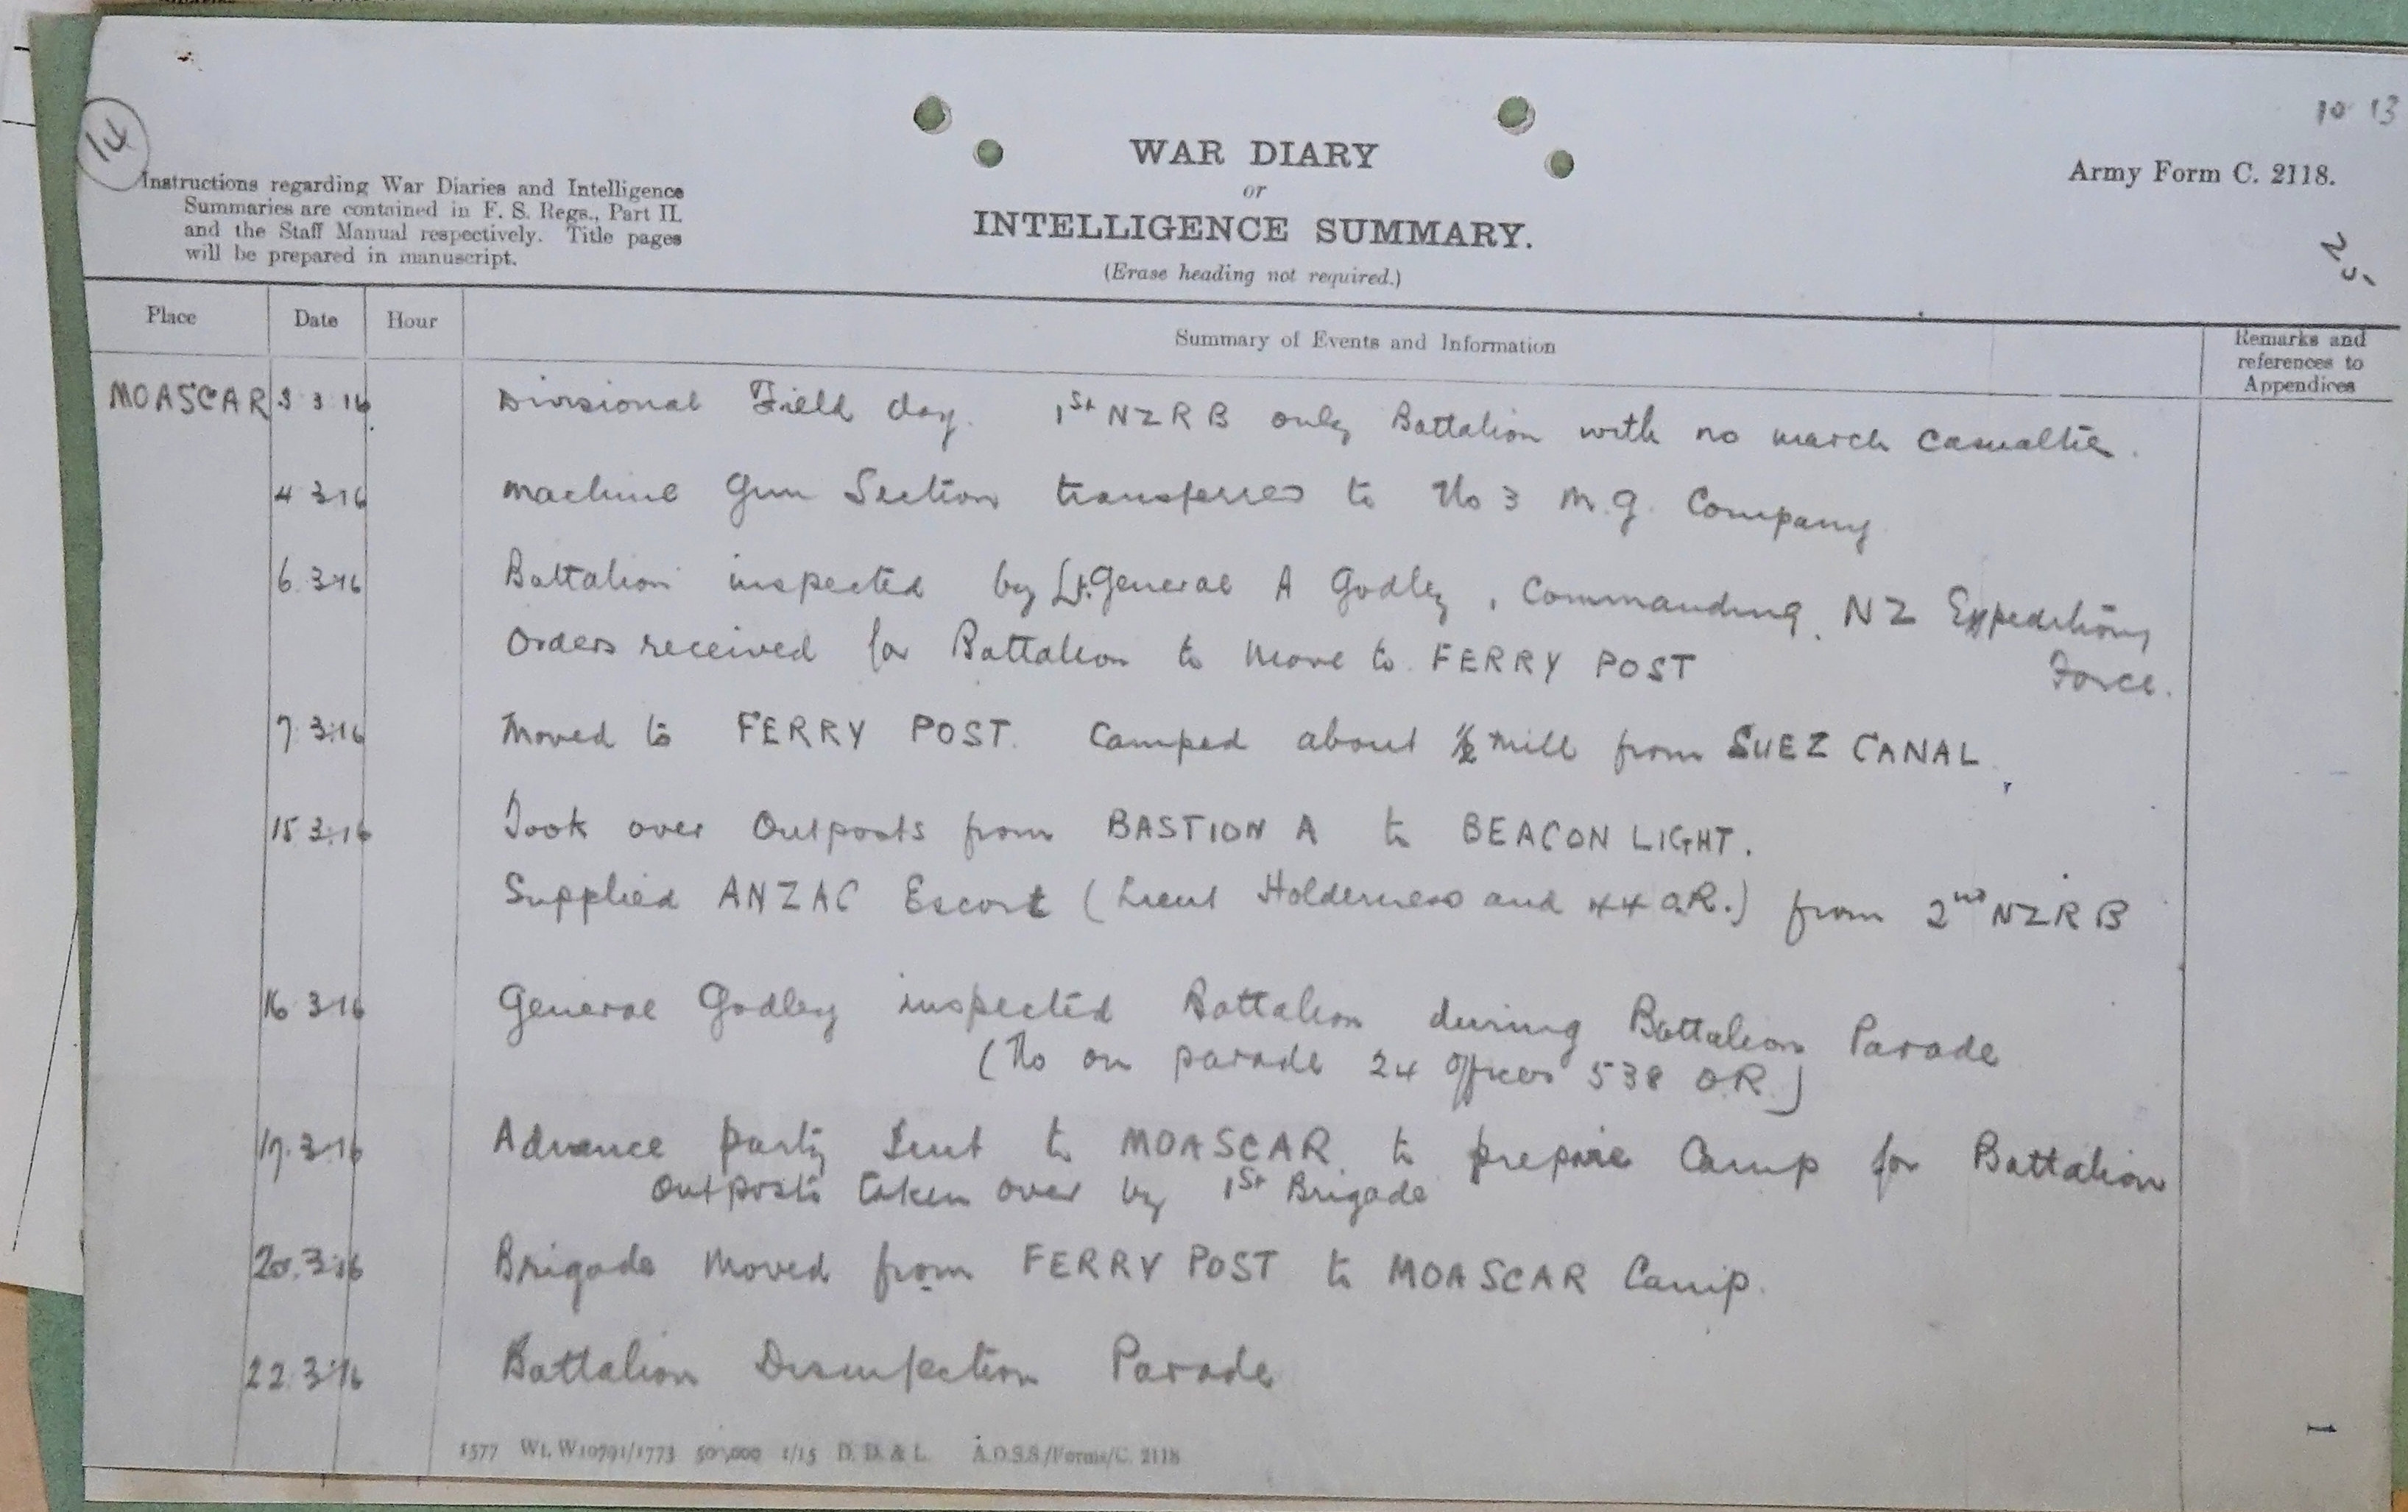 10 13
14
Instructions regarding War Diaries and Intelligence
Summaries are contained in F. S. Regs., Part II.
and the Staff Manual respectively. Title pages
will be prepared in manuscript.
WAR DIARY
or
INTELLIGENCE SUMMARY.
(Erase heading not required.)
Army Form C. 2118.
Place Date Hour Summary of Events and Information Remarks and
references to
Appendices
MOASCAR 3 3 16 Divisional Field day. 1st NZRB only Battalion with no march casualties.
4 3 16 Machine Gun Section transferred to No 3 M.G. Company
6.3.16 Battalion inspected by Lt. General A Godley, Commanding NZ Expeditiony
Force.
Orders received for Battalion to move to FERRY POST
7.3.16 Moved to FERRY POST. Camped about ½ mile from SUEZ CANAL
15.3.16 Took over Outposts from BASTION A to BEACON LIGHT.
Supplied ANZAC Escort (Lieut Holderness and 44 O.R.) from 2nd NZRB
16.3.16 General Godley inspected Battalion during Battalion Parade
(No on parade 24 officers 538 O.R.)
17.3.16 Advance party sent to MOASCAR to prepare Camp for Battalion
Outposts taken over by 1st Brigade
20.3.16 Brigade moved from FERRY POST to MOASCAR Camp.
22.3.16 Battalion Disinfection Parade
1577 Wt. W10791/1773 500,000 1/15 D. D. & L. A.D.S.S./Forms/C. 2118